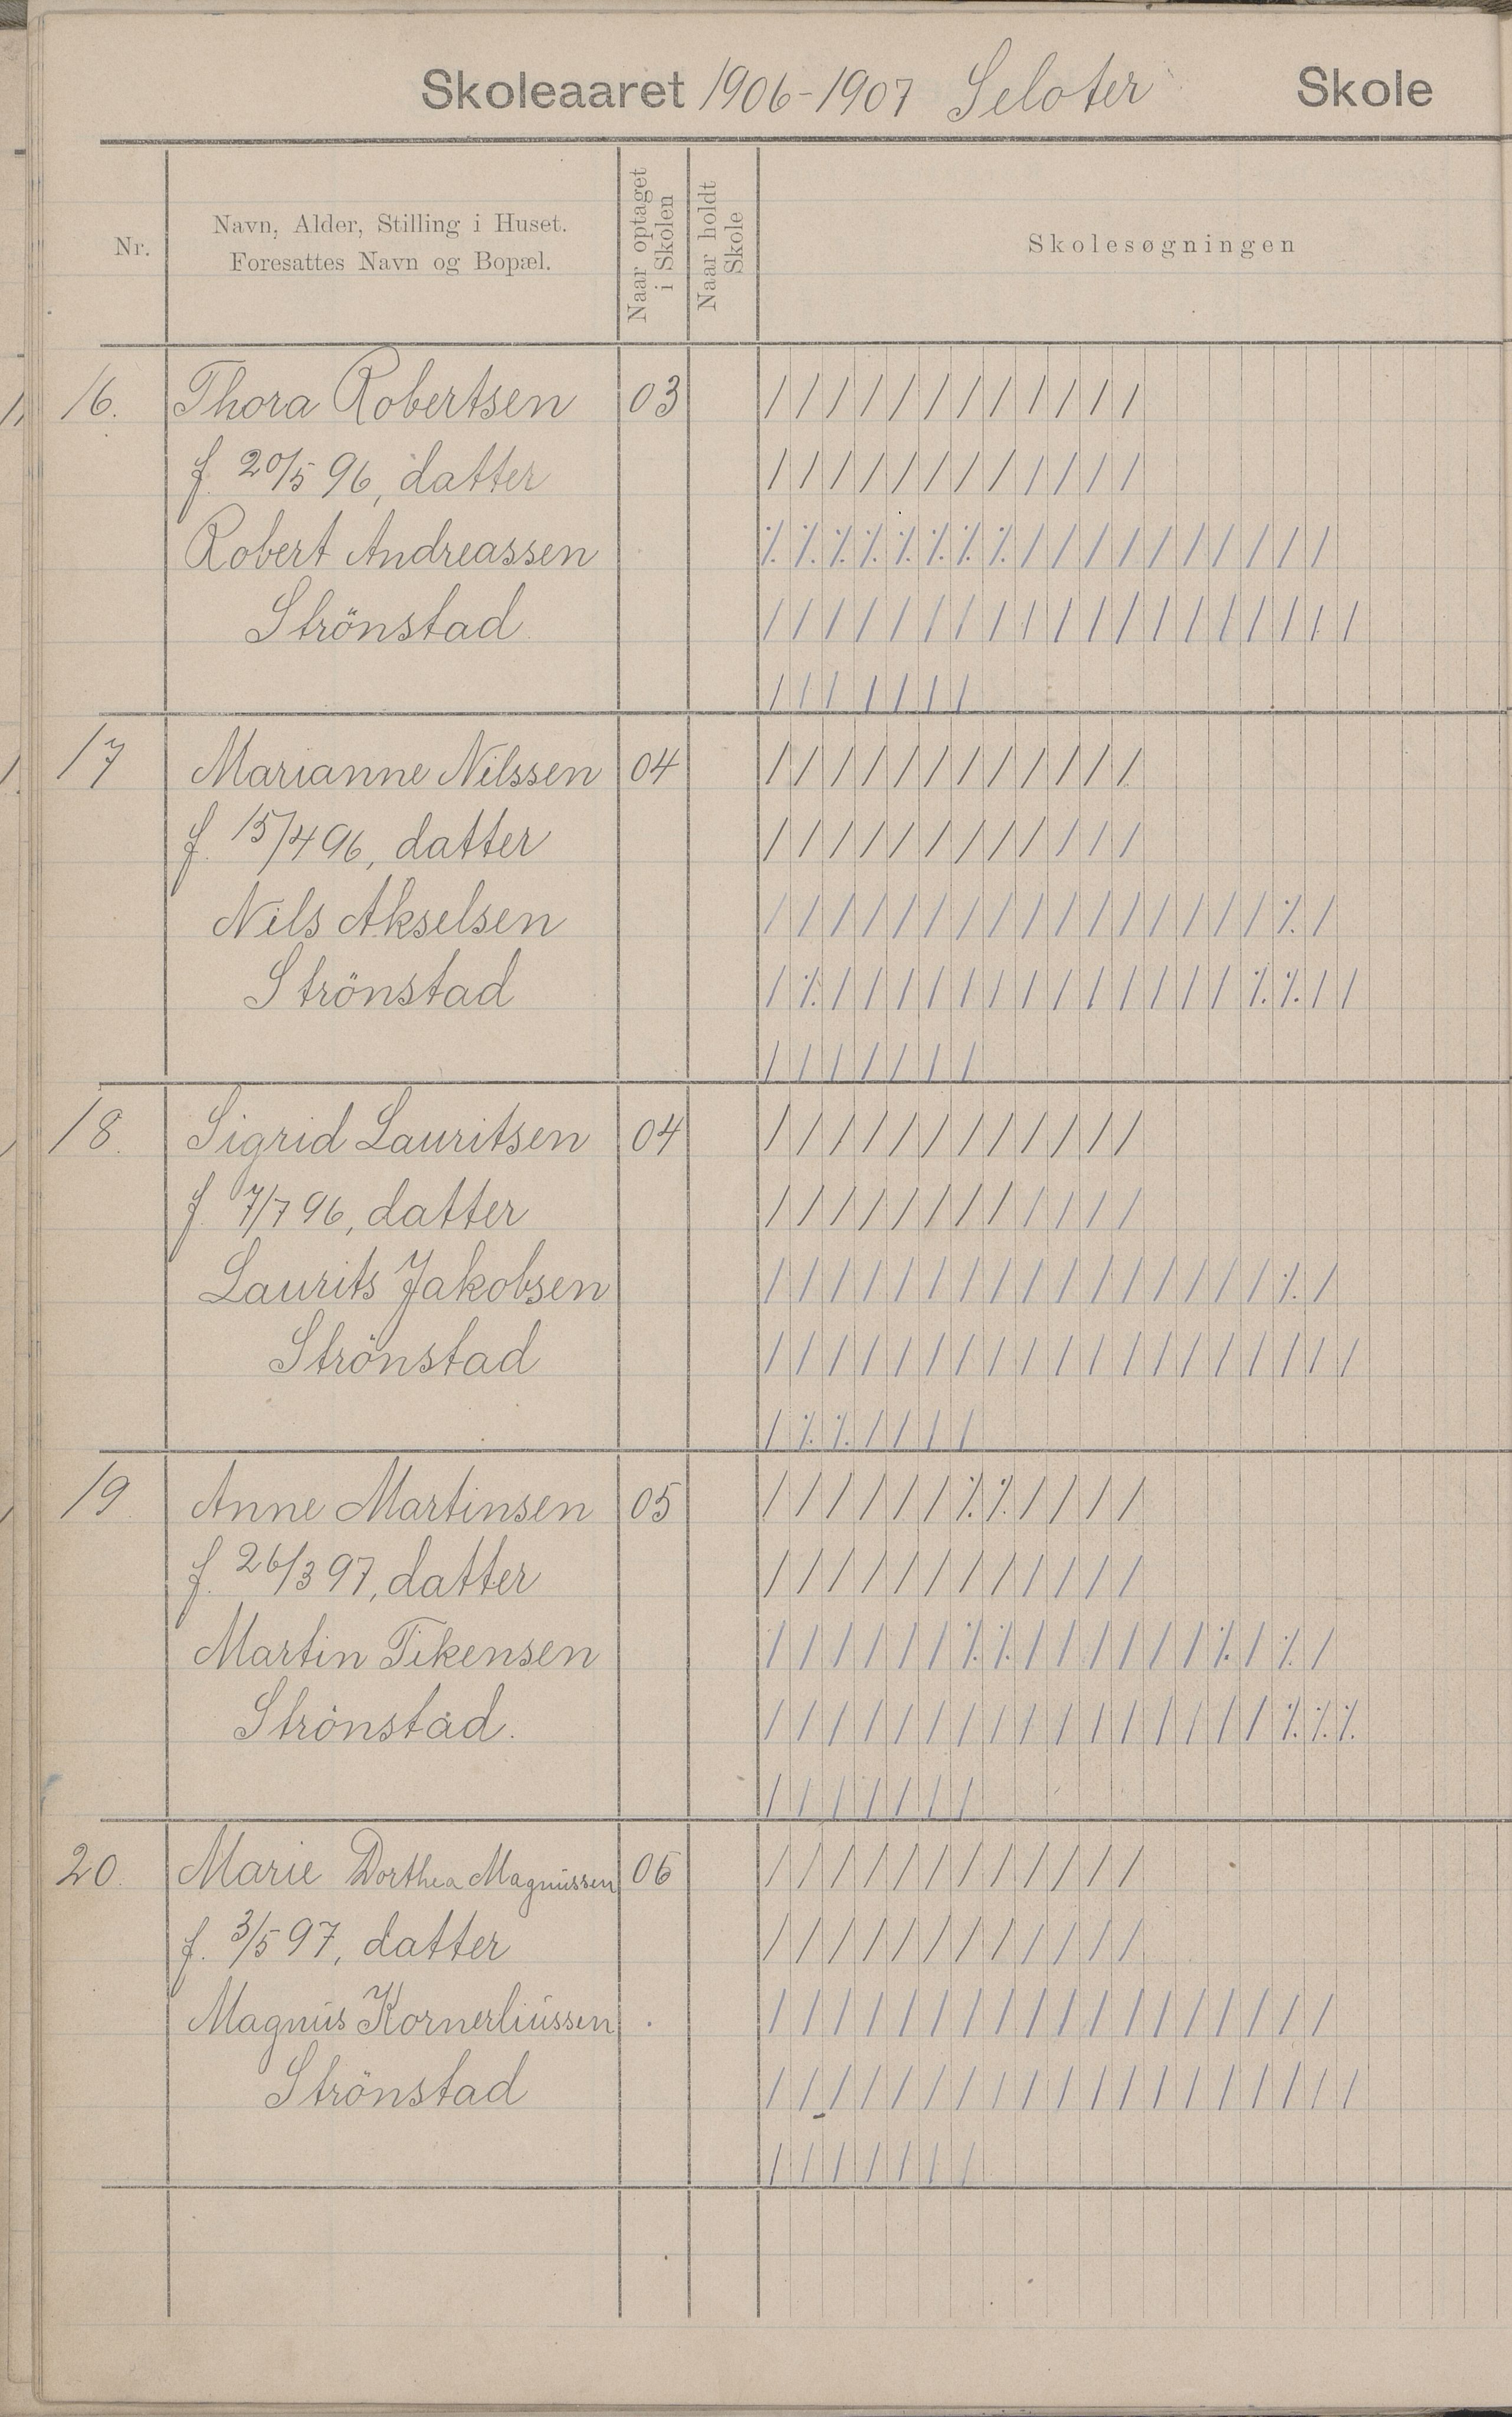 Skoleaaret 1906-1907 Seloter Skole
Nr.
Navn, Alder, Stilling i Huset.
Foresattes Navn og Bopæl.
Naar optaget
i Skolen
Naar holdt
Skole
Skolesøgningen
16. Thora Robertsen 03 / / / / / / / / / / / /
f. 20/5 96, datter / / / / / / / / / / / /
Robert Andreassen ⁒ ⁒ ⁒ ⁒ ⁒ ⁒ ⁒ ⁒ / / / / / / / / / /
Strönstad / / / / / / / / / / / / / / / / / / /
/ / / / / / /
17 Marianne Nilssen 04 / / / / / / / / / / / /
f. 15/4 96, datter / / / / / / / / / / / /
Nils Akselsen / / / / / / / / / / / / / / / / ⁒ /
Strönstad / ⁒ / / / / / / / / / / / / / ⁒ ⁒ / /
/ / / / / / /
18. Sigrid Lauritsen 04 / / / / / / / / / / / /
f. 7/7 96, datter / / / / / / / / / / / /
Laurits Jakobsen / / / / / / / / / / / / / / / / ⁒ /
Strönstad / / / / / / / / / / / / / / / / / / /
/ ⁒ ⁒ / / / /
19 Anne Martinsen 05 / / / / / / ⁒ ⁒ / / / /
f. 26/3 97, datter / / / / / / / / / / / /
Martin Tikensen / / / / / / ⁒ ⁒ / / / / / / ⁒ / ⁒ /
Strönstad. / / / / / / / / / / / / / / / / ⁒ ⁒ ⁒
/ / / / / / /
20. Marie Dorthea Magnussen 06 / / / / / / / / / / / /
f. 3/5 97, datter / / / / / / / / / / / /
Magnus Kornerliussen / / / / / / / / / / / / / / / / / /
Strönstad / / / / / / / / / / / / / / / / / / /
/ / / / / / /